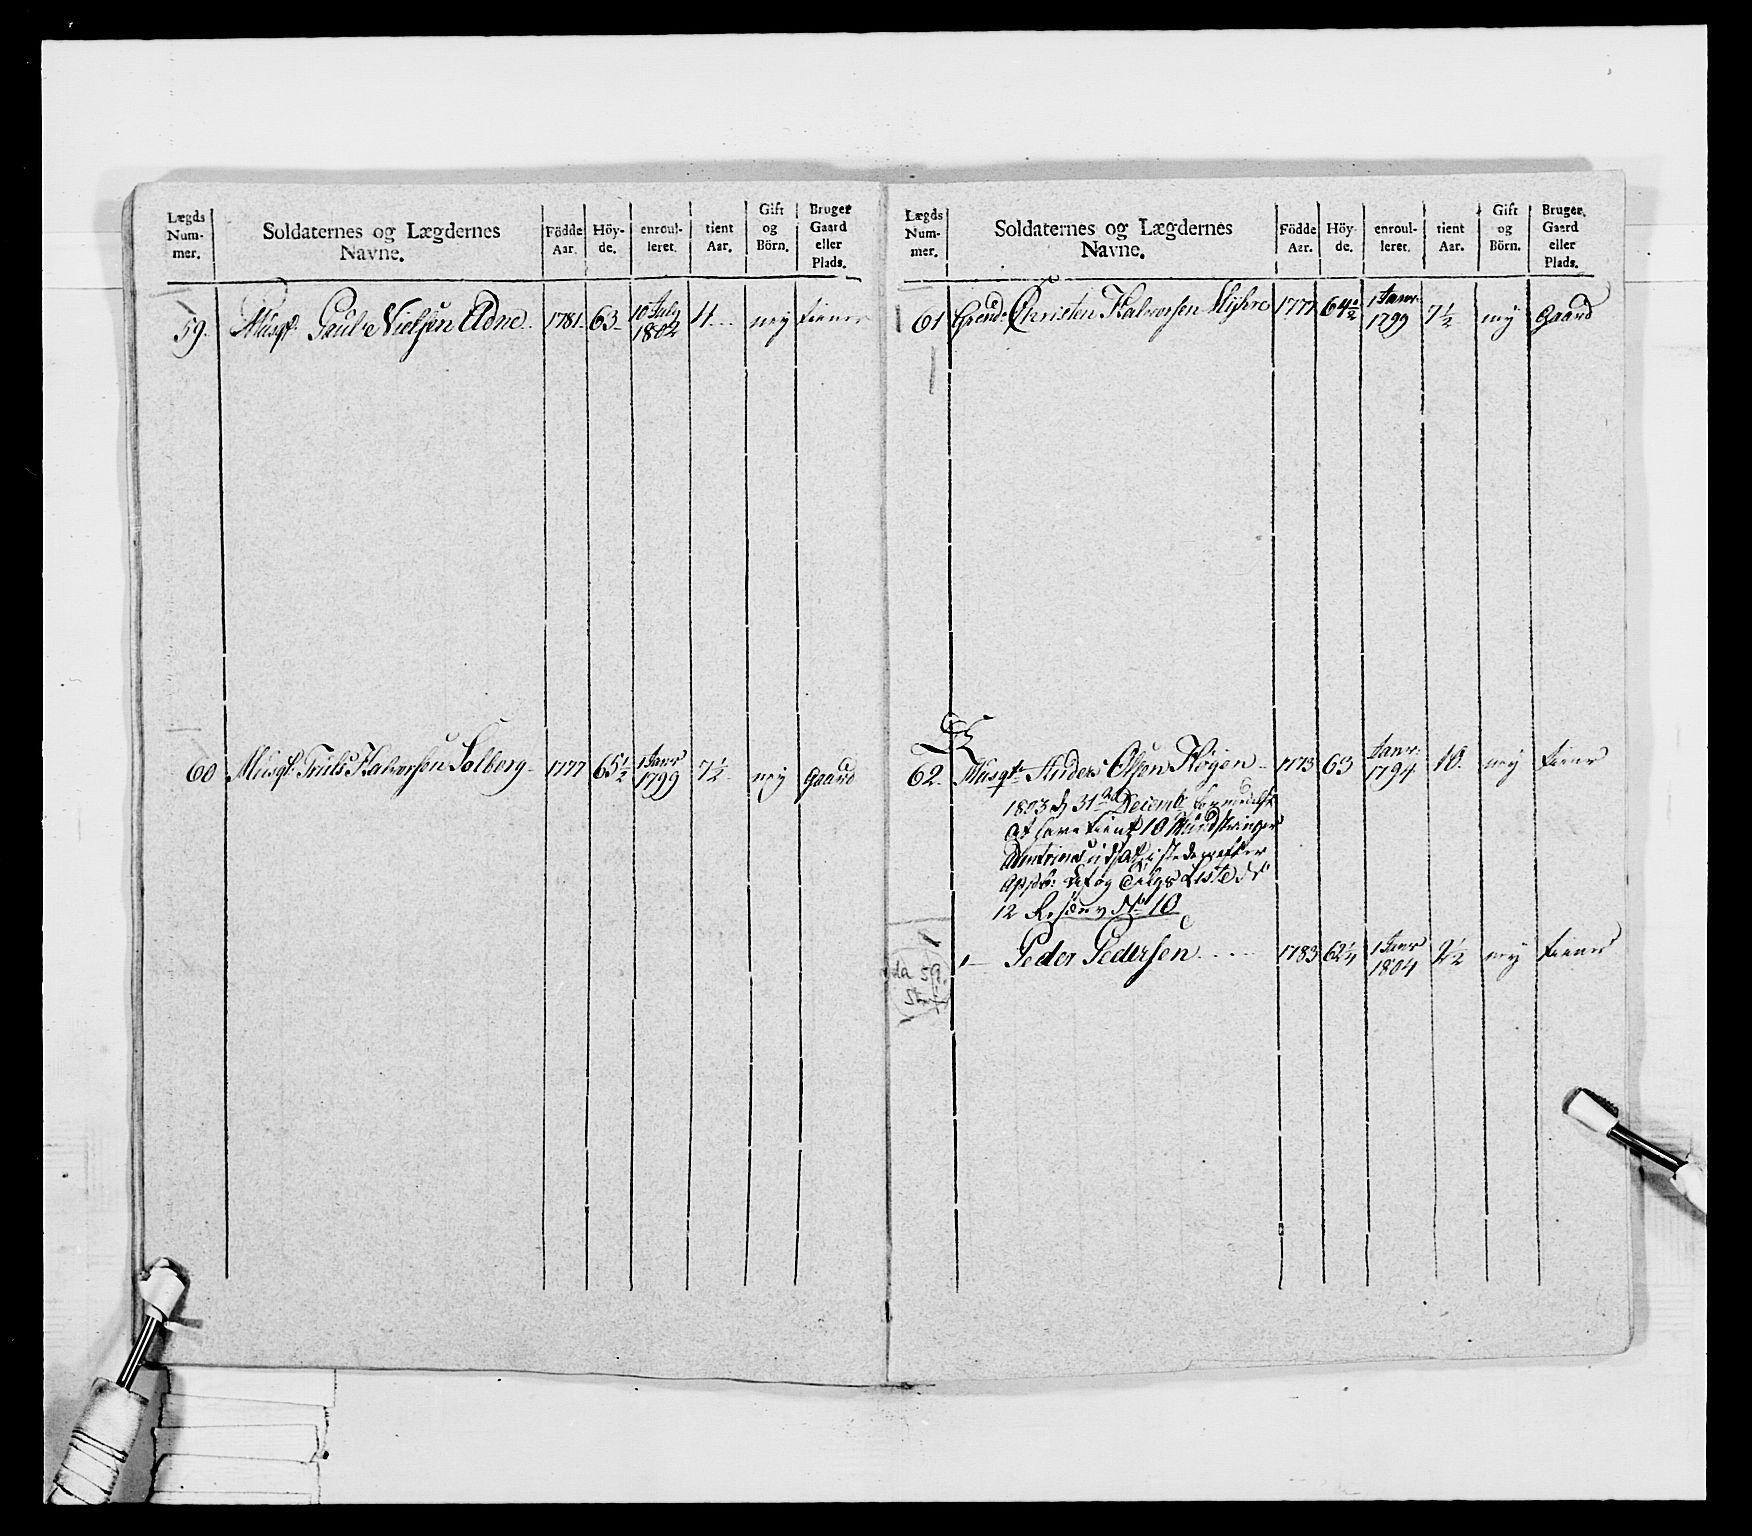 Lægds Num- mer.
Soldaternes og Lægdernes Navne.
Födde Aar.
Höy- de.
enroul- leret.
tient Aar.
Gift og Börn.
Bruger Gaard eller Plads.
59. Musqt. Poul Nielsen Adne 1781. 63 10 July 1802 4 ney tiener
60 Musqt. Truls Halvorsen Solberg 1777 65½ 1 Janr 1799 7½ ney Gaard
Lægds Num- mer.
Soldaternes og Lægdernes Navne.
Födde Aar.
Höy- de.
enroul- leret.
tient Aar.
Gift og Börn.
Bruger. Gaard eller Plads.
61 Grend. Christen Halvorsen 1777 64½ 1 Janr 1799 7½ ney Gaard
62. Musqt. Anders Olsen Högen 1773 63 Janr. 1794 10. ney tiener
1803 d 31te Decembr formedelst
at have tient 10
efter
Liste
12 No 10
Peder Pedersen 1783 62¼ 1 Janr 1804 2½ ney tiener
da 59